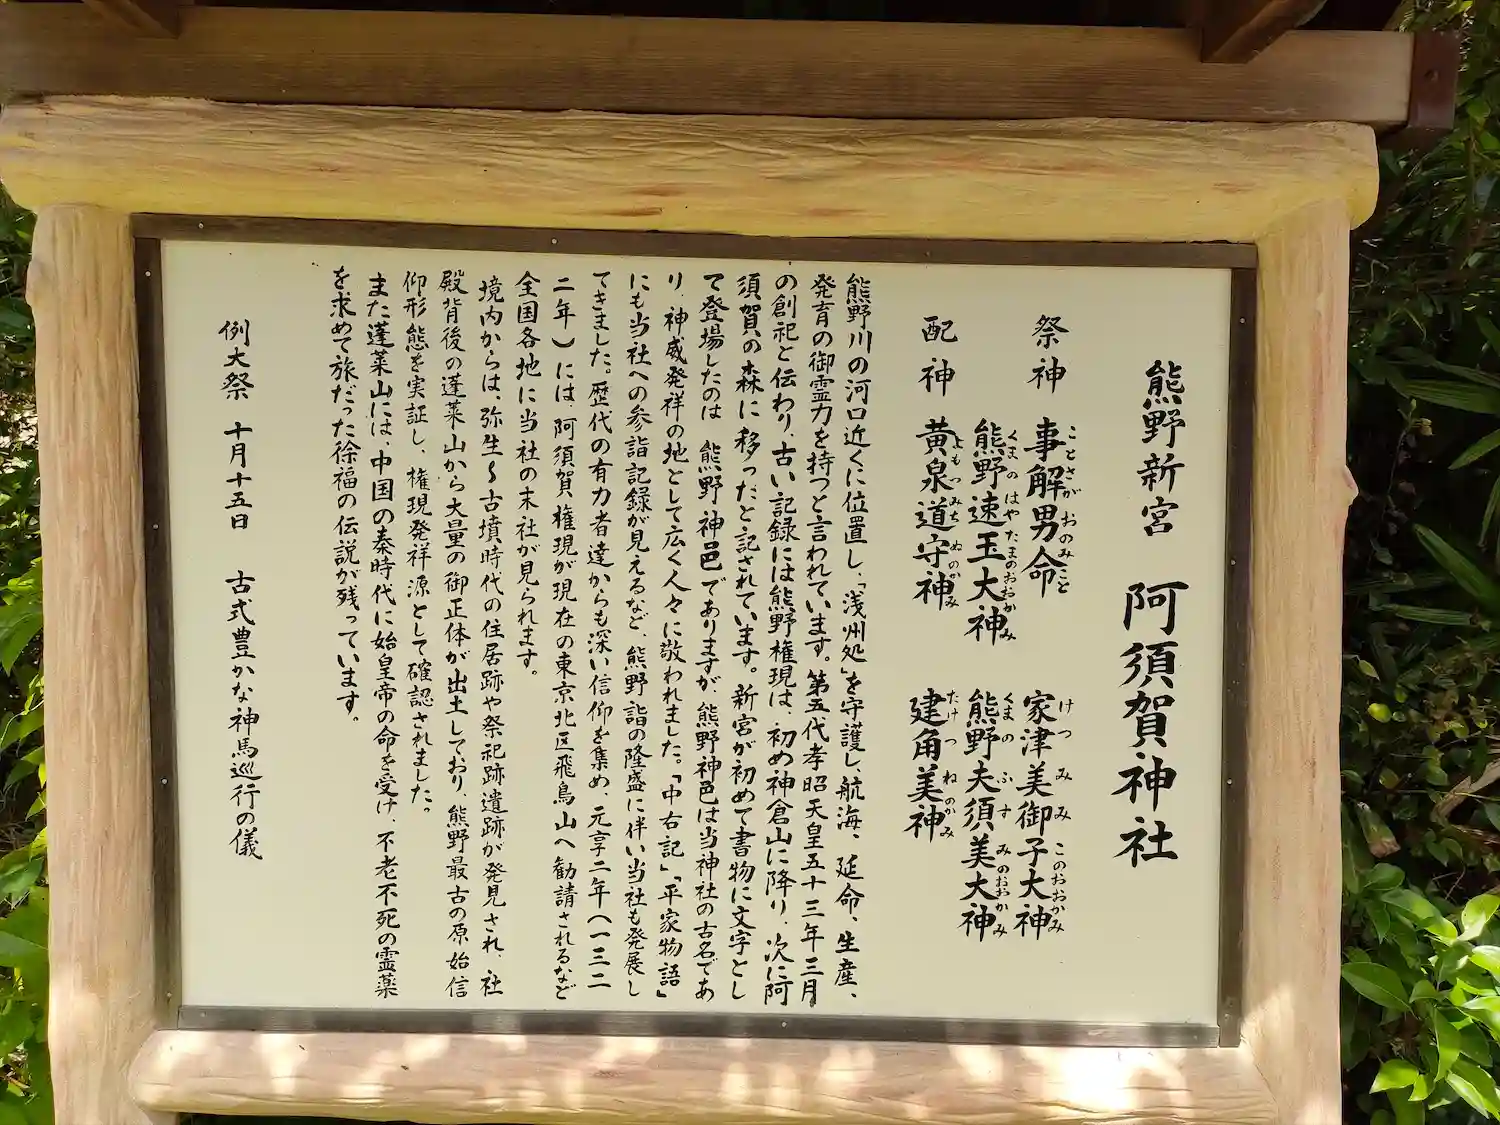 熊野新宮 阿須賀神社
祭神 事解男命 家津美御子大神
ことさかおのみこと けつみみこのおおかみ
熊野速玉大神 熊野夫須美大神
くまのはやたまのおおかみ くまのふすみのおおかみ
配神 黄泉道守神 建角美神
よもつみちぬのかみ たけつねのかみ
熊野川の河口近くに位置し、「浅州処」を守護し、航海、延命、生産、
発育の御霊力を持つと言われています。第五代孝昭天皇五十三年三月
の創祀と伝わり、古い記録には熊野権現は、初め神倉山に降り、次に阿
須賀の森に移ったと記されています。新宮が初めて書物に文字とし
て登場したのは 熊野神邑でありますが、熊野神邑は当神社の古名であ
り、神威発祥の地として広く人々に敬われました。「中右記」「平家物語」
にも当社への参詣記録が見えるなど、熊野詣の隆盛に伴い当社も発展し
てきました。歴代の有力者達からも深い信仰を集め、元享二年(一三二
二年)には、阿須賀権現が現在の東京北区飛鳥山へ勧請されるなど
全国各地に当社の末社が見られます。
境内からは、弥生~古墳時代の住居跡や祭祀跡遺跡が発見され、社
殿背後の蓬莱山から大量の御正体が出土しており、熊野最古の原始信
仰形態を実証し、権現発祥源として確認されました。
また蓬莱山には、中国の秦時代に始皇帝の命を受け、不老不死の霊薬
を求めて旅だった徐福の伝説が残っています。
例大祭 十月十五日 古式豊かな神馬巡行の儀